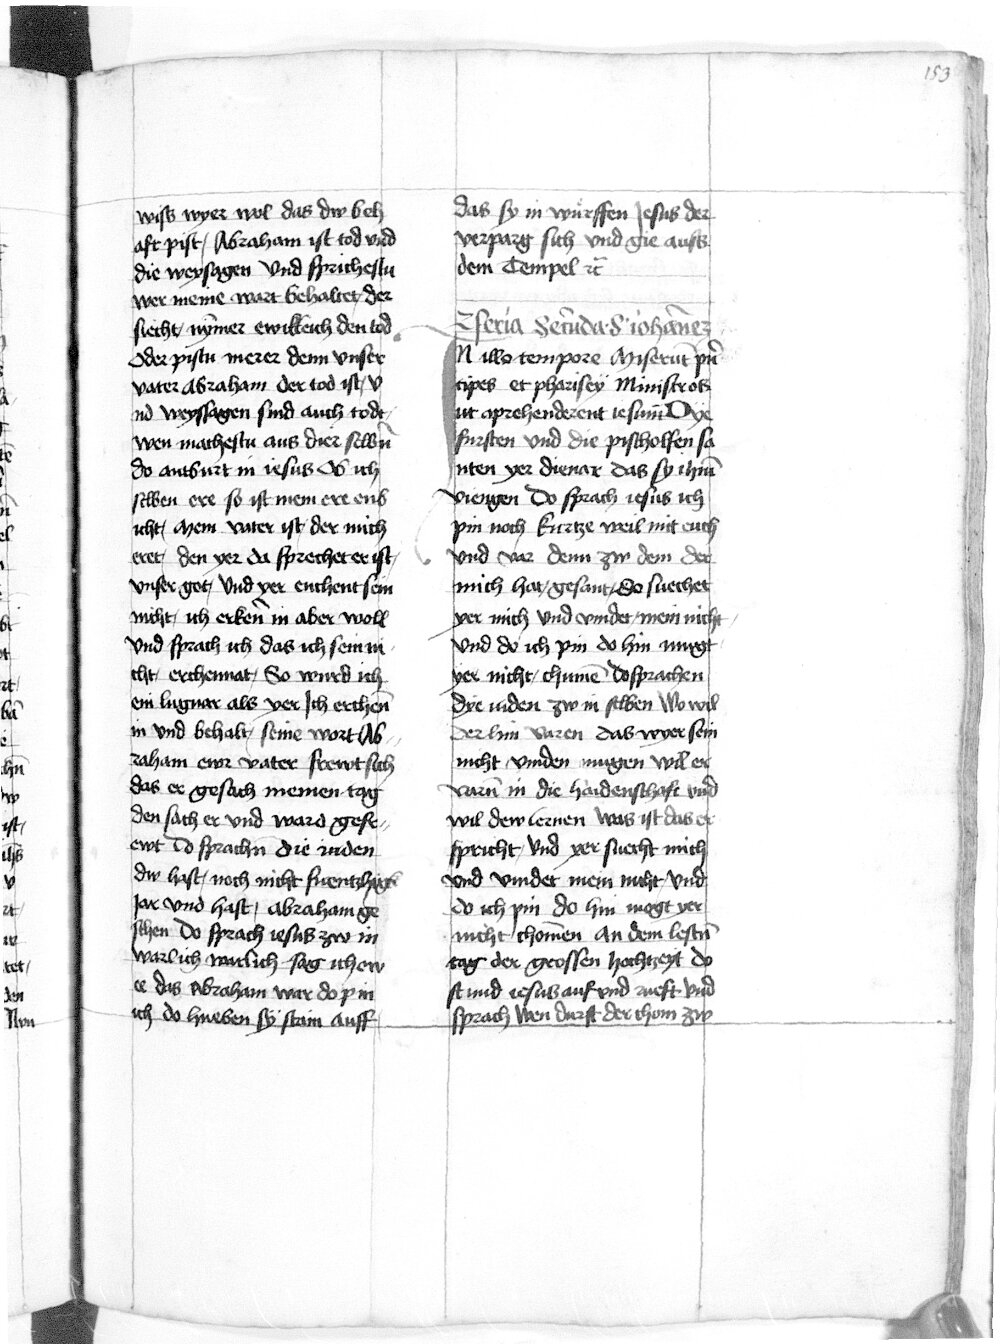 153
wiss wyer wol das dw beh
aft pist / Abraham ist tod vnd
die weysagen Vnd sprichestu
wer meine wart behaltet / der
siecht / nÿmer ewikleich den tod
Oder pistu merer denn vnser
vater abraham der tod ist / v
nd weyssagen sind auch todt /
wen machestu aus dier selbñ
do antburt in iesus Ob ich
selben ere so ist mein ere enb
icht / Mein vater ist / der mich
eret / den yer da sprechet er ist /
vnser got / Vnd yer enchent sein
nicht / ich erkeñ in aber woll
Vnd sprach ich das ich sein ni
cht / erchennat / So wurd ich
ein lugnar als yer Ich ercheñ
in vnd behalt / seine wort / Ab
raham ewr vater frewt sich
das er gesach meinen tag
den sach er vnd ward gefr
ewt Do sprachñ die iuden
dw hast / noch nicht fuentzkgk
Jar vnd hast / abraham ge
sehen Do sprach iesus zw in
warlich warlich sag ich ew
ee das Abraham war do pin
ich do hueben sÿ stain auff
das sy in würffen Jesus der
verparg sich vnd gie auss
dem Tempel rc̃
Feria Secũda · S' iohãnez
N illo tempore Miserũt prĩ
cipes et pharisey Ministros
ut aprehenderent iesum Dye
fursten vnd die pischolfen sa
nten yer dienar das sy ihm̃
viengen Do sprach iesus ich
pin noch kurtze weil mit euch
vnd var denn zw dem der
mich hat / gesant / So suechet
yer mich vnd vindet / mein nicht
vnd do ich pin do hin mugt
yer nicht / chumẽ do sprachen
dye iuden zw in selben Wo wil
der hin varen das wyer sein
nicht vinden mugen wil er
varñ in die haidenschaft vnd
wil dew lernen Was ist das er
spricht / Vnd yer suecht mich
vnd vindet mein nicht / vnd
do ich pin do hin mogt yer
nicht chom̃en An dem lestñ
tag der grossen hochtzeyt do
stuend iesus auf vnd rueft vnd
sprach Wen durst der chom zw